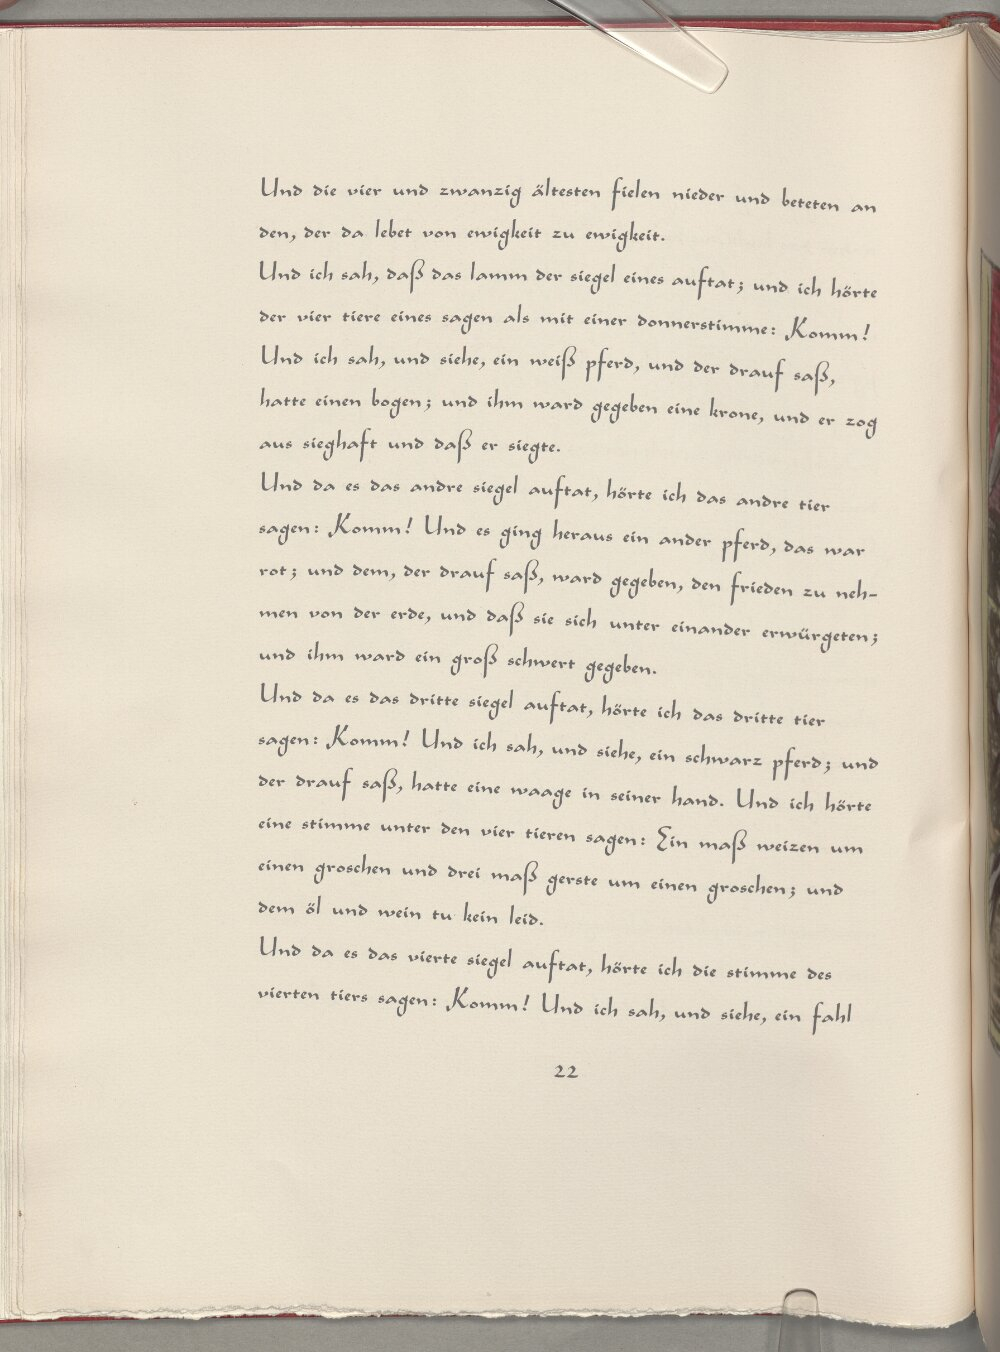 Und die vier und zwanzig ältesten fielen nieder und beteten an
den, der da lebet von ewigkeit zu ewigkeit.
Und ich sah, daß das lamm der siegel eines auftat; und ich hörte
der vier tiere eines sagen als mit einer donnerstimme: Komm!
Und ich sah, und siehe, ein weiß pferd, und der drauf saß,
hatte einen bogen; und ihm ward gegeben eine krone, und er zog
aus sieghaft und daß er siegte.
Und da es das andre siegel auftat, hörte ich das andre tier
sagen: Komm! Und es ging heraus ein ander pferd, das war
rot; und dem, der drauf saß, ward gegeben, den frieden zu neh-
men von der erde, und daß sie sich unter einander erwürgeten;
und ihm ward ein groß schwert gegeben.
Und da es das dritte siegel auftat, hörte ich das dritte tier
sagen: Komm! Und ich sah, und siehe, ein schwarz pferd; und
der drauf saß, hatte eine waage in seiner hand. Und ich hörte
eine stimme unter den vier tieren sagen: Ein maß weizen um
einen groschen und drei maß gerste um einen groschen; und
dem öl und wein tu kein leid.
Und da es das vierte siegel auftat, hörte ich die stimme des
vierten tiers sagen: Komm! Und ich sah, und siehe, ein fahl
22